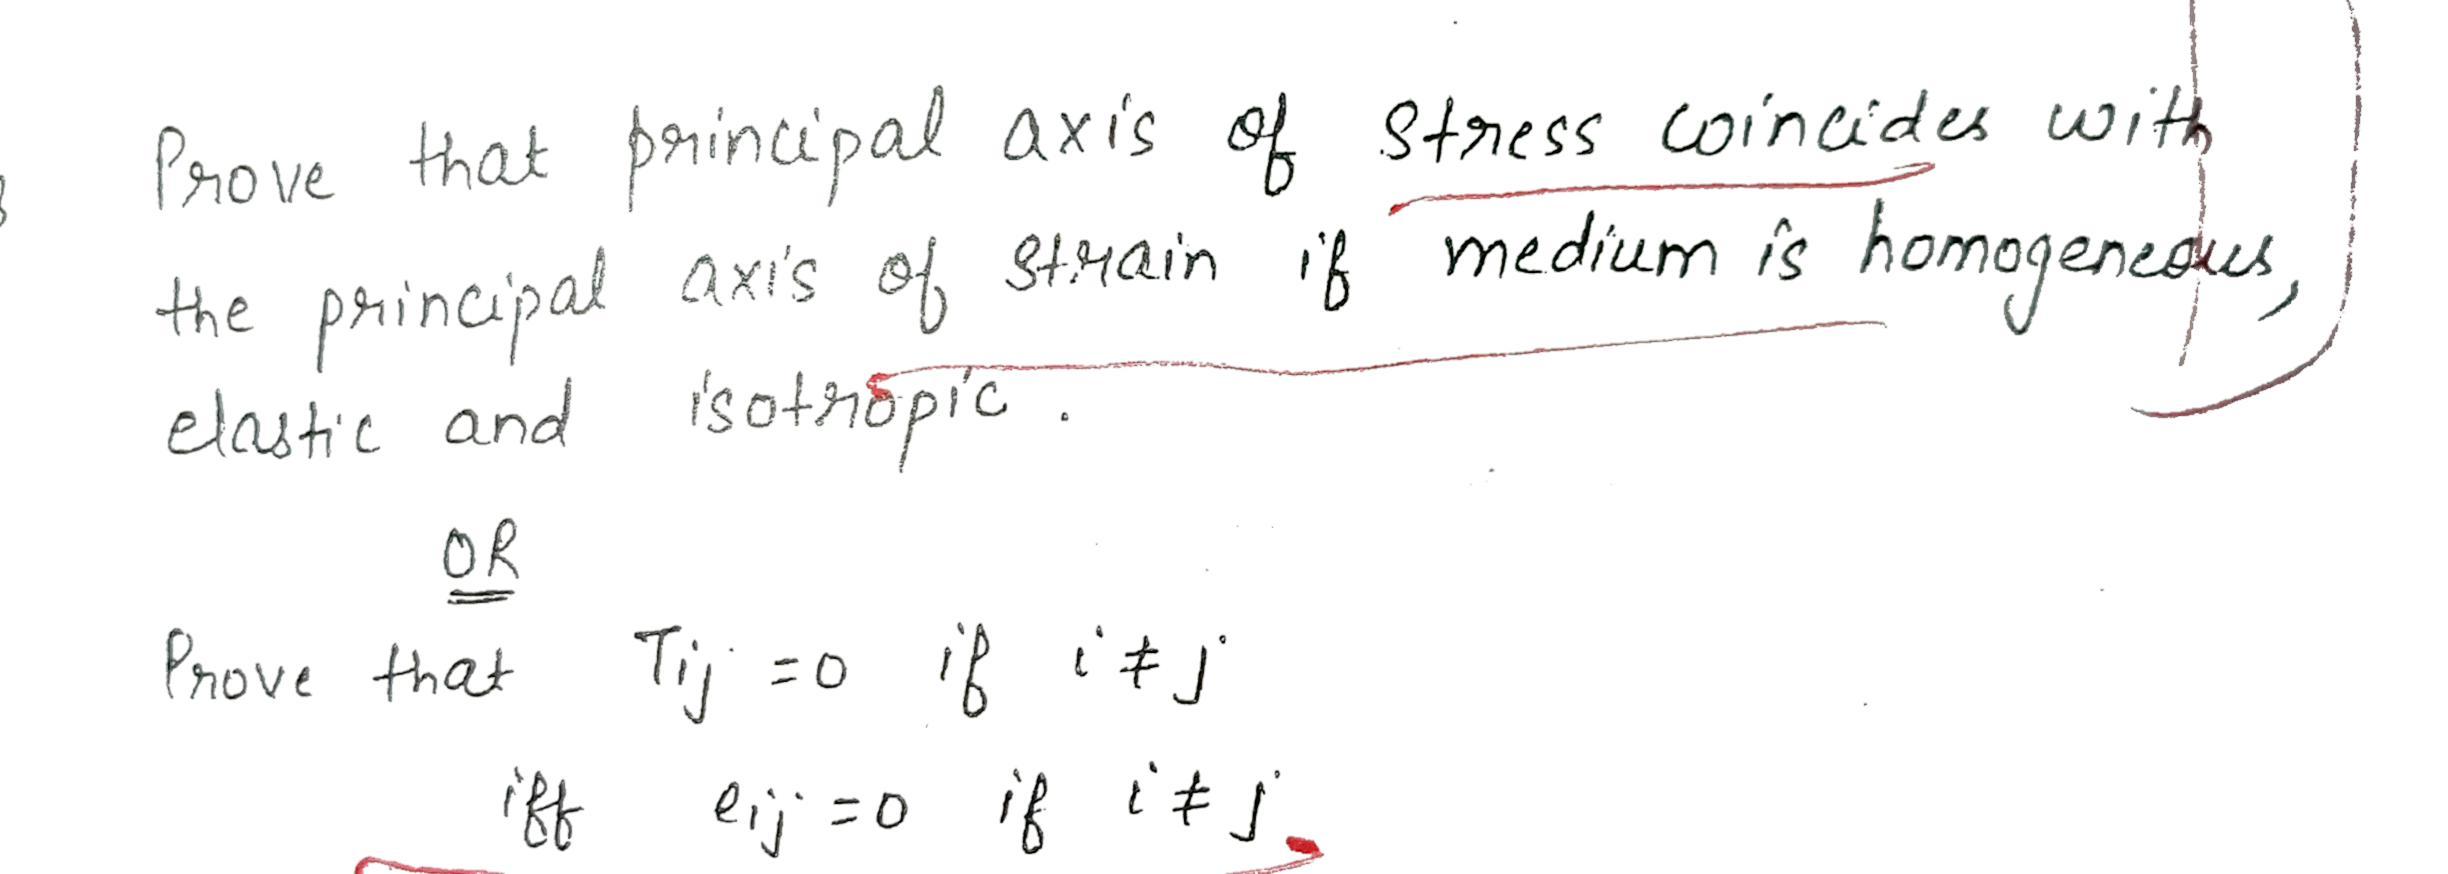 Prove that principal axis of stress coincides with
the principal axis of strain if medium is homogeneous,
elastic and isotropic.
OR
Prove that Tij = 0 if i ≠ j
iff eij = 0 if i ≠ j.